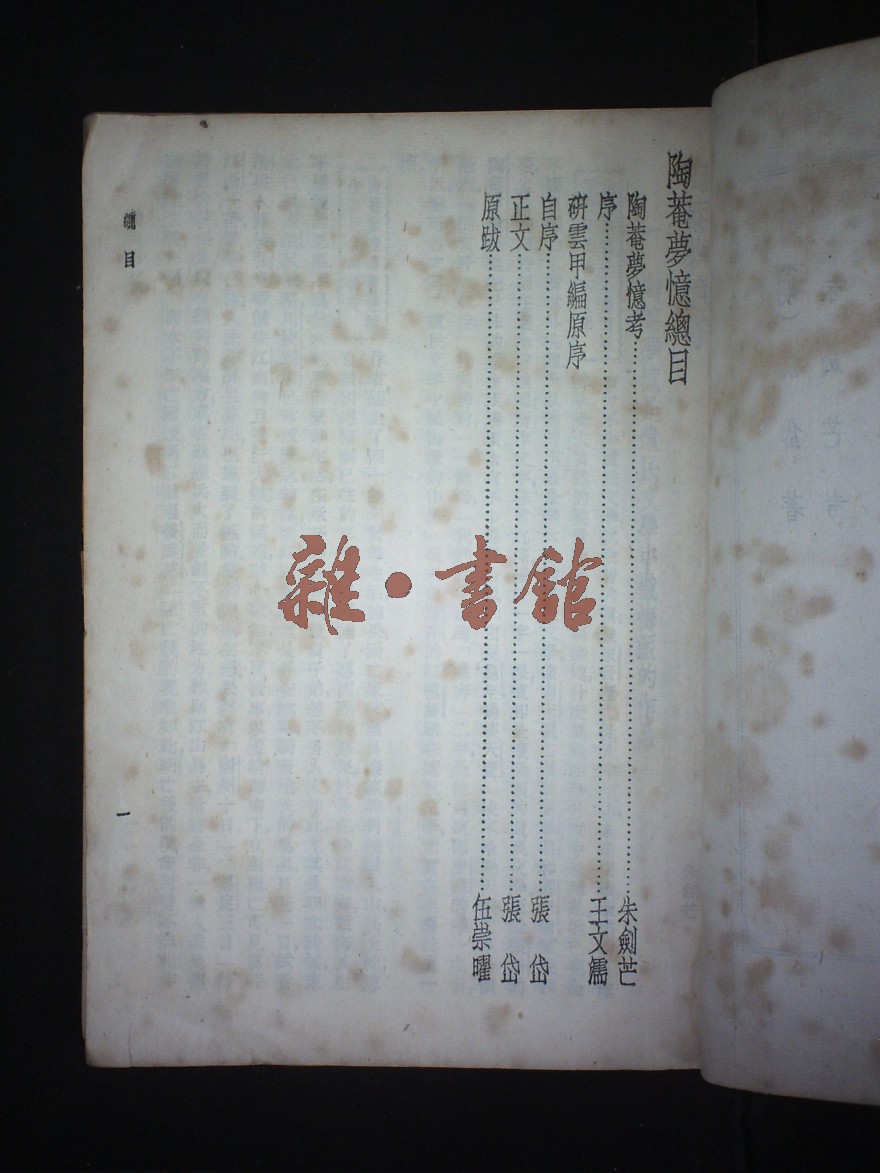 陶菴夢憶總目
陶菴夢憶考……朱劍芒
序……王文濡
硏雲甲編原序
自序……張岱
正文……張岱
原跋……伍崇曜
總目
一
雜·書館